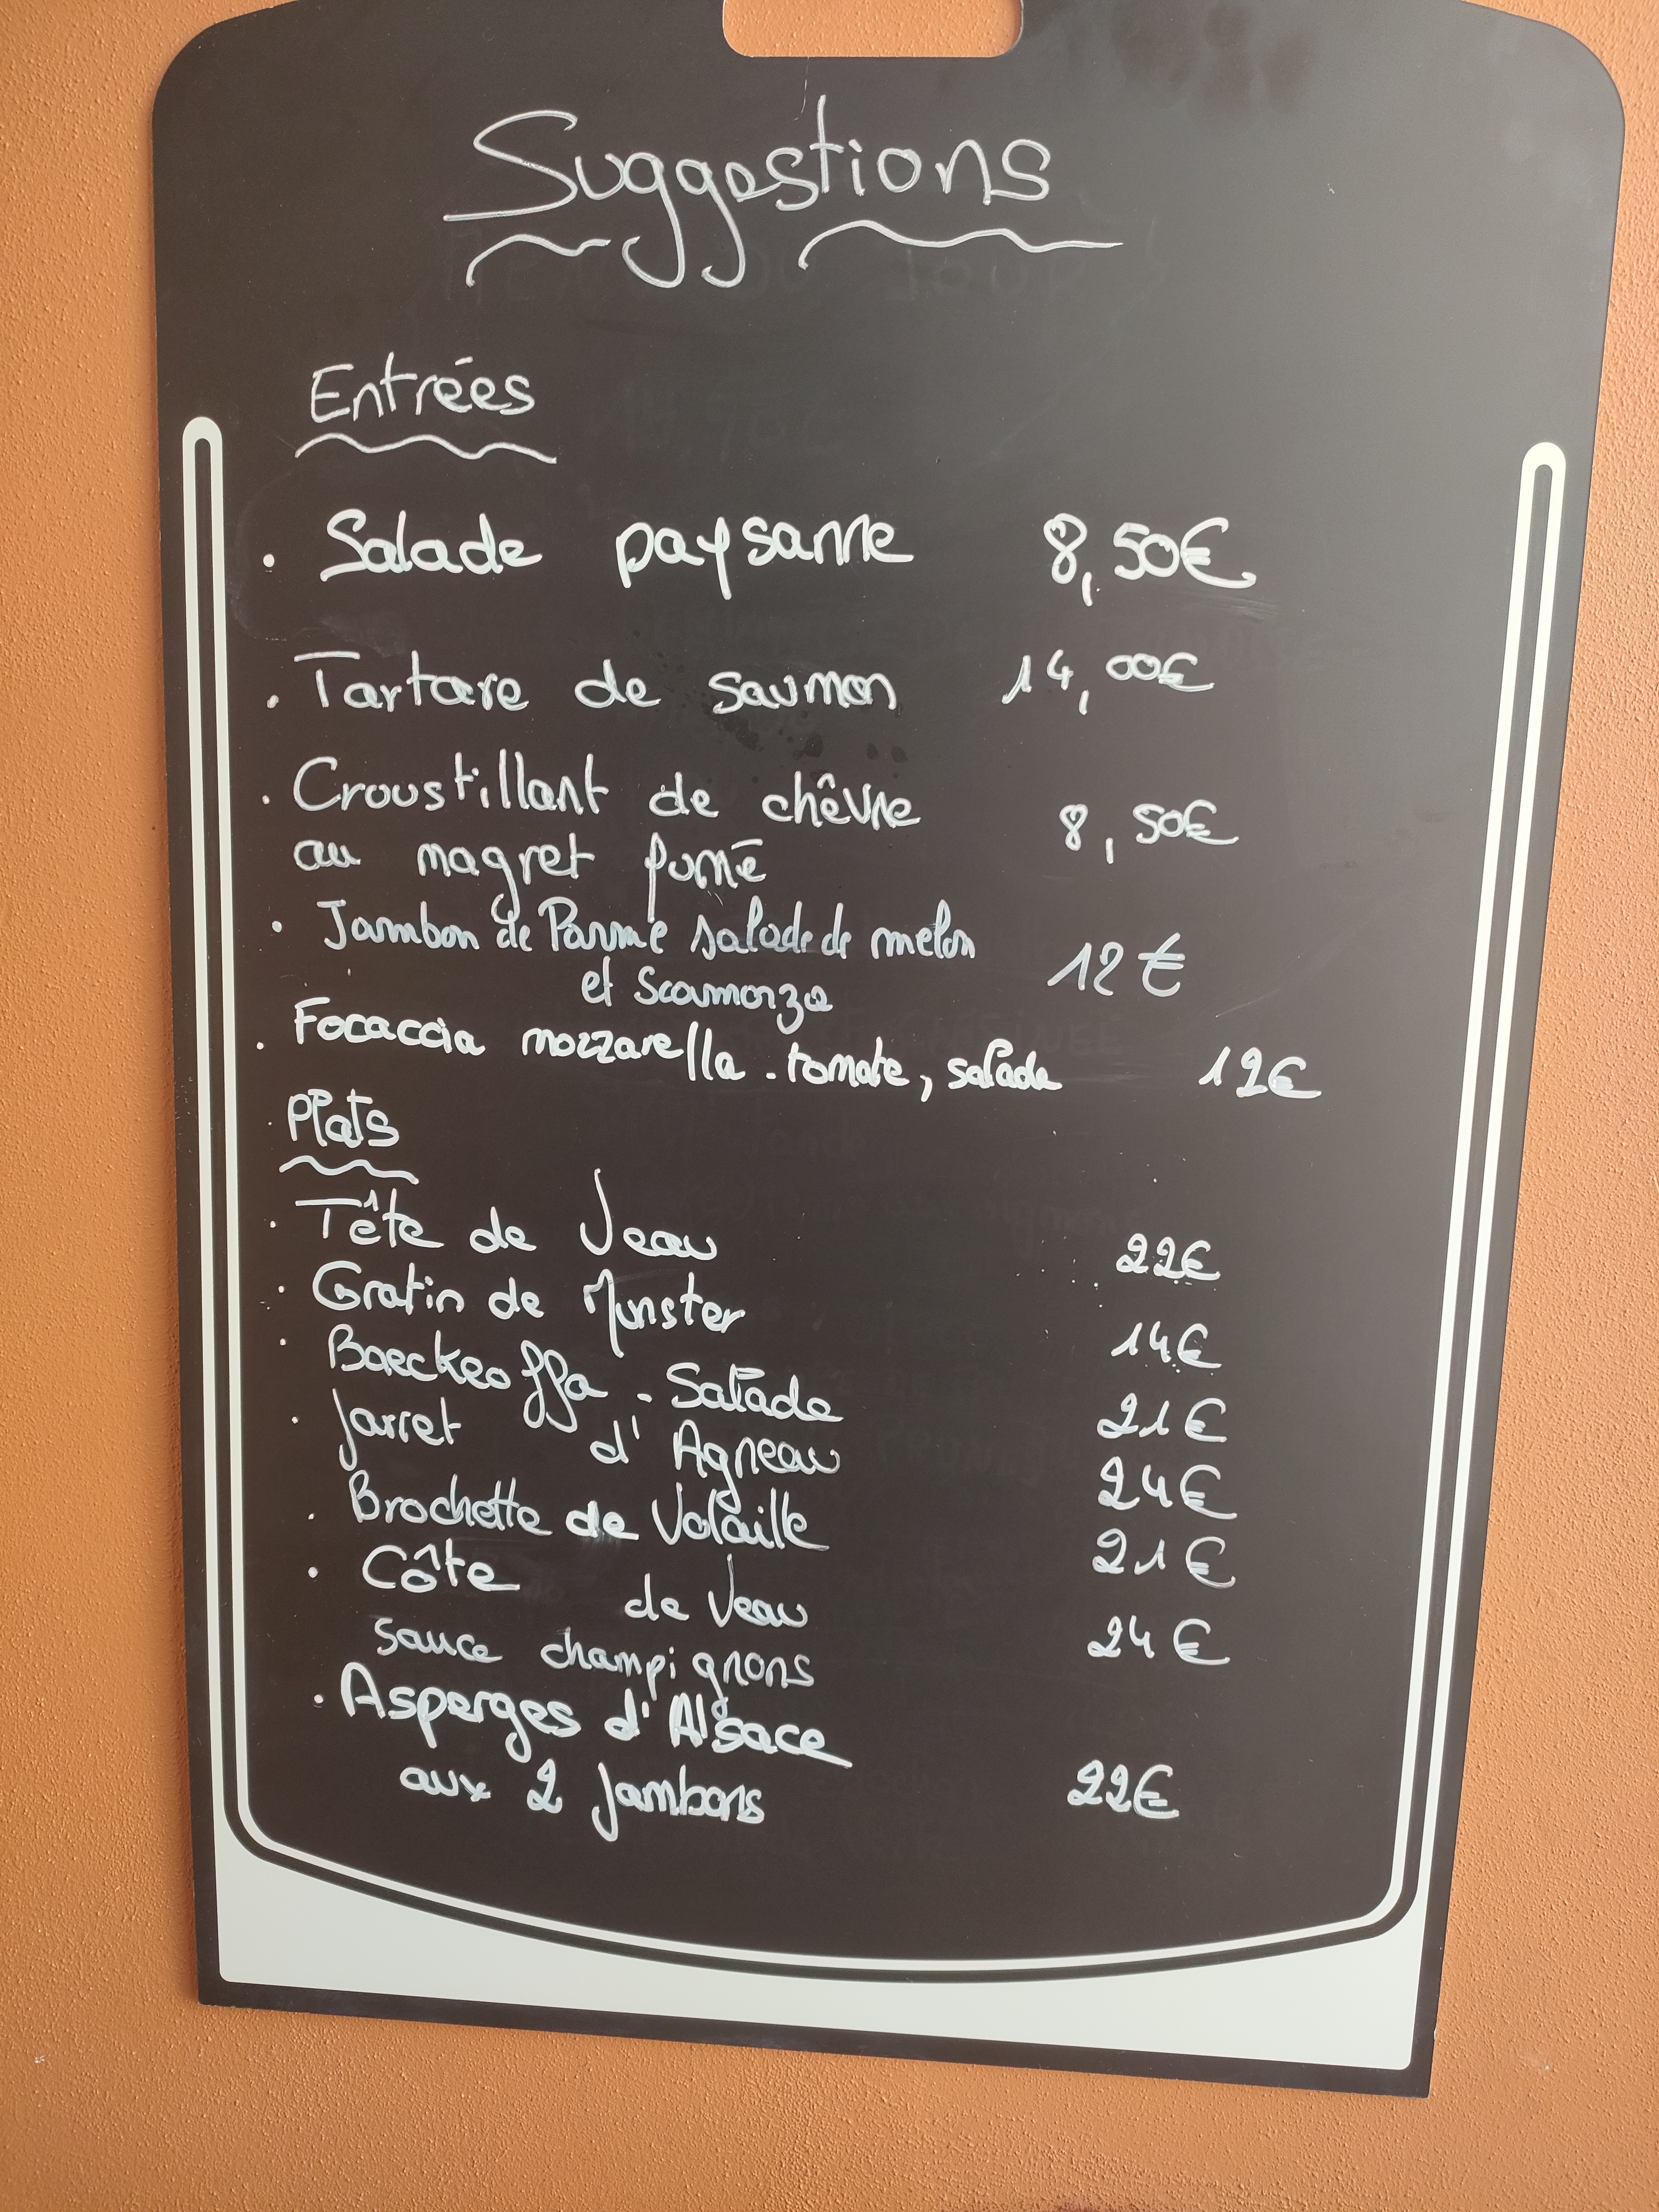 Suggestions
Entrées
. Salade paysanne 8,50€
. Tartare de saumon 14,00€
. Croustillant de chêvre 8,50€
au magret fumé
. Jambon de Parme salade de melon 12€
et Scamorza
. Focaccia mozzarella - tomate, salade 12€
. Plats
. Tête de Veau 22€
. Gratin de Munster 14€
. Baeckeoffa - Salade 21€
. Jarret d'Agneau 24€
. Brochette de Volaille 21€
. Côte de Veau 24€
sauce champignons
. Asperges d'Alsace
aux 2 Jambons 22€